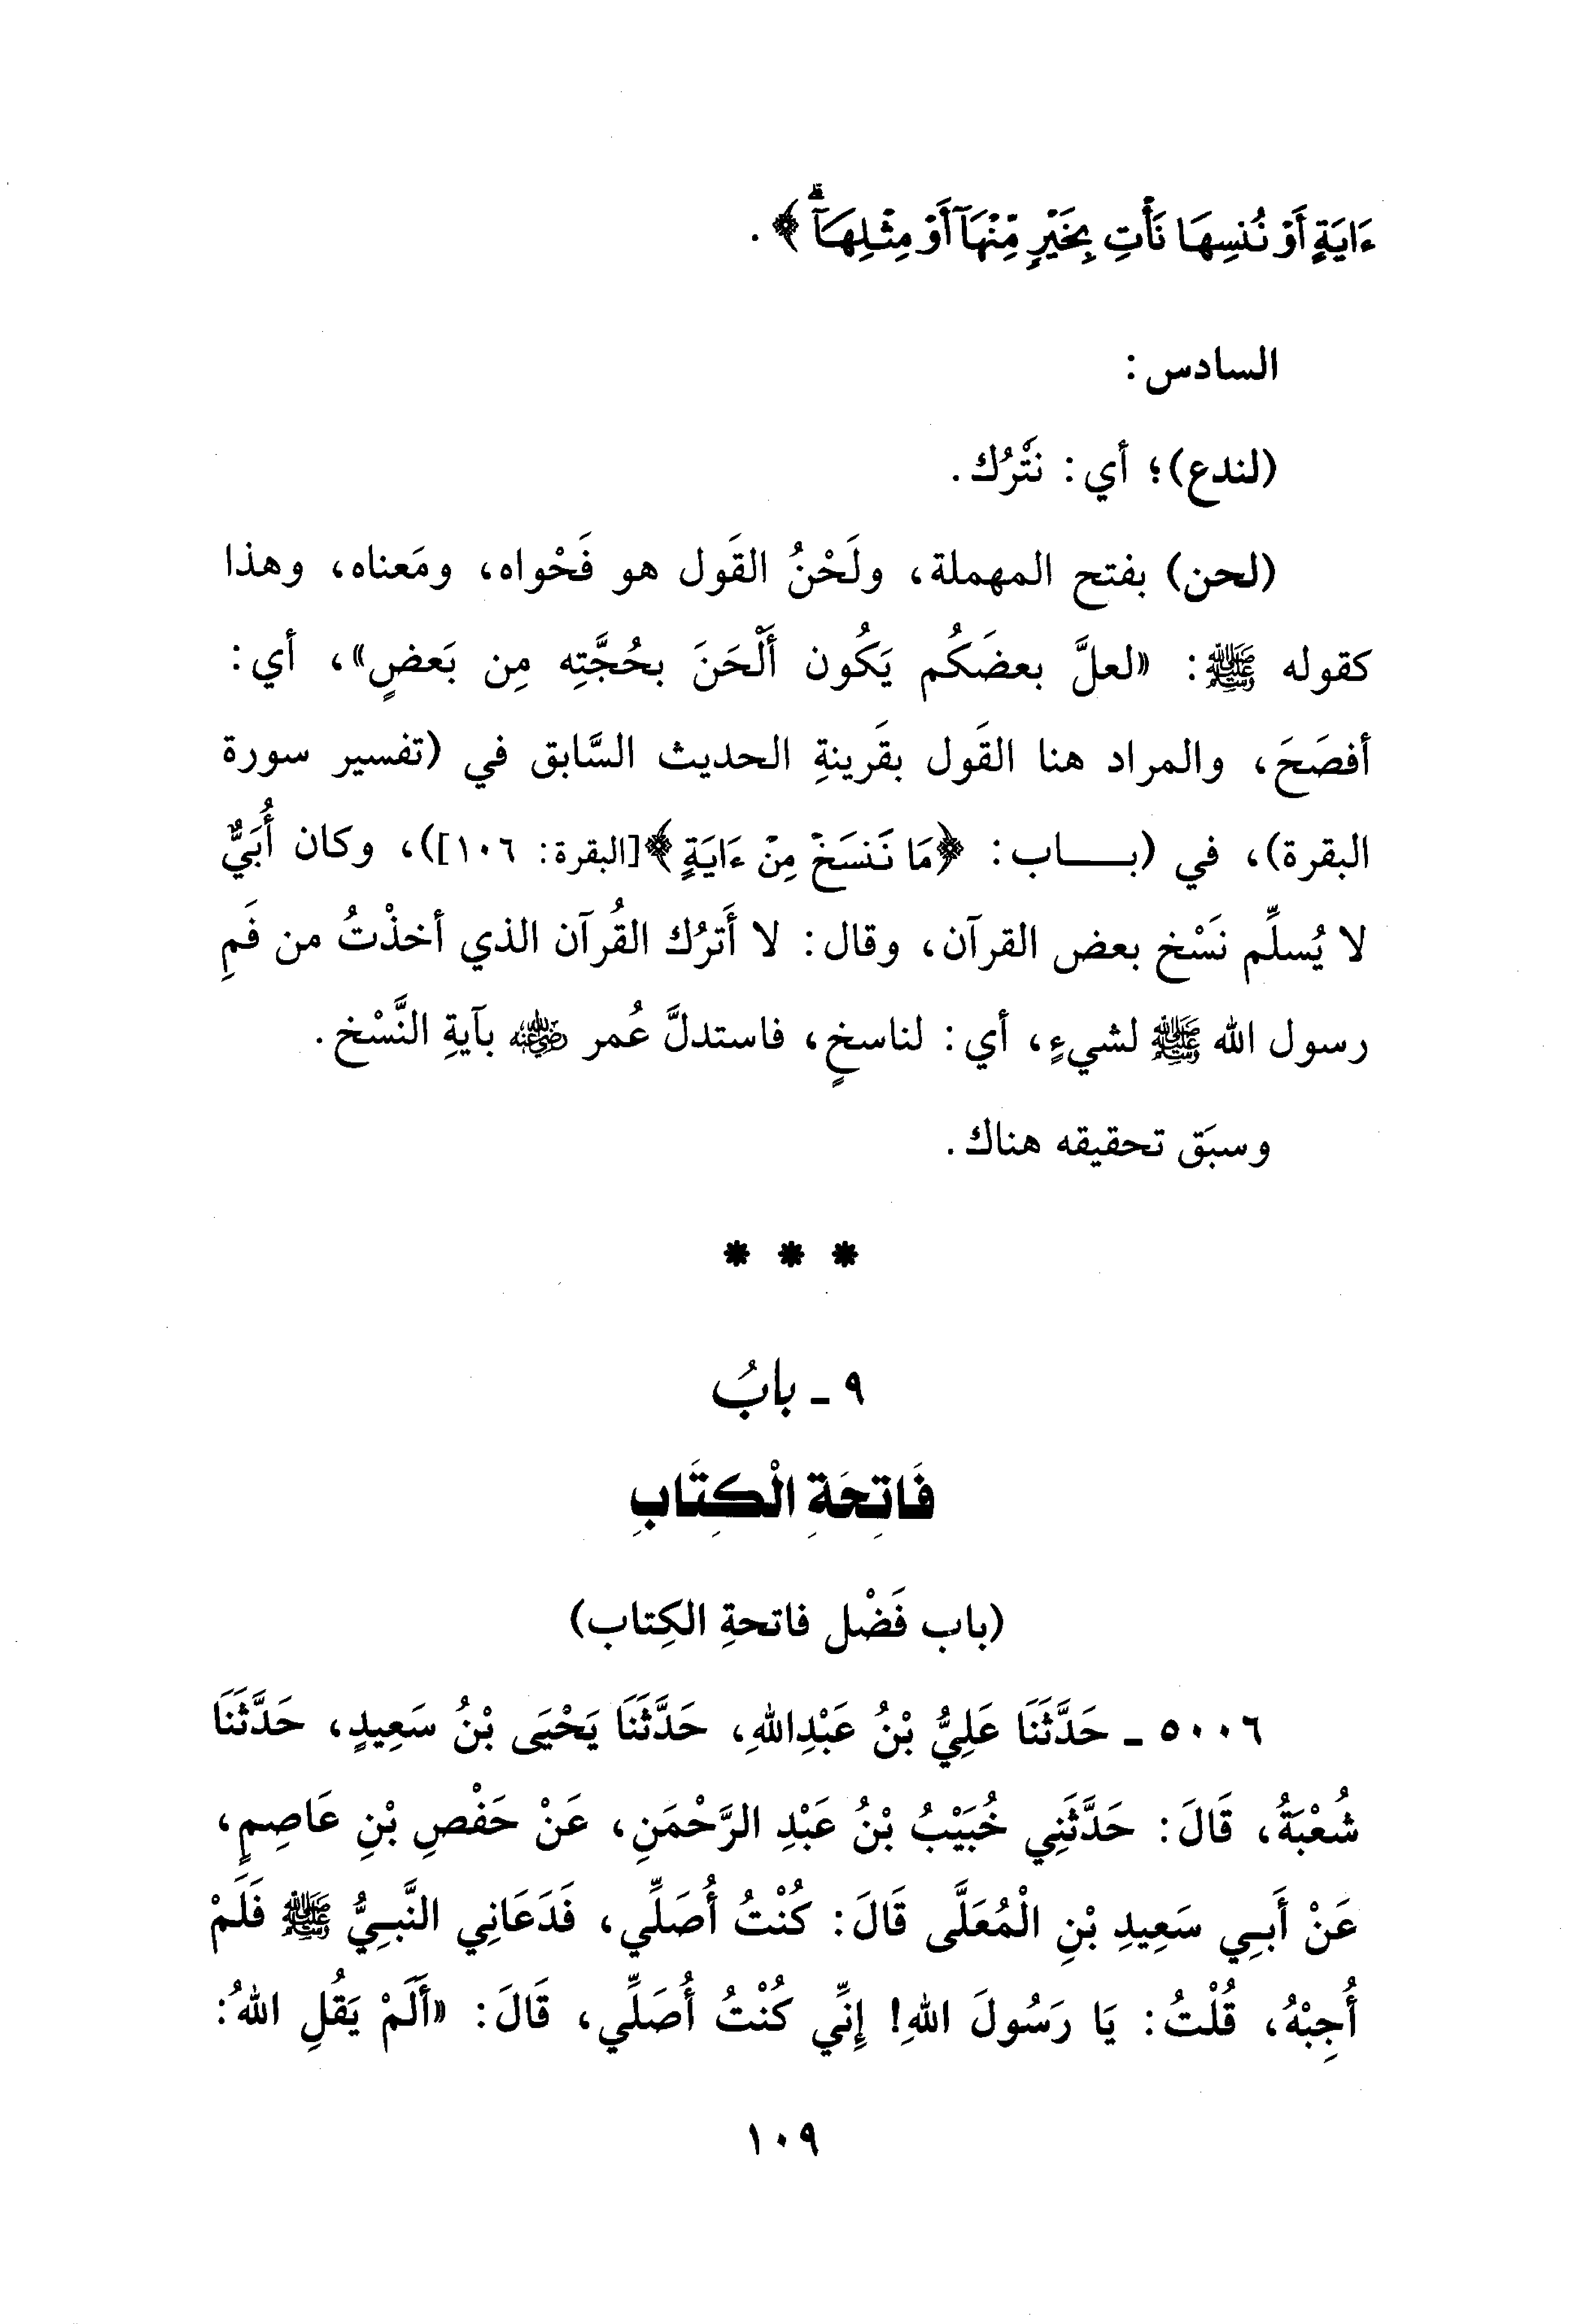 ءَايَةٍ أَوْ نُنسِهَا نَأْتِ بِخَيْرٍ مِّنْهَآ أَوْ مِثْلِهَآ ۗ﴾.
السادس:
(لندع)؛ أي: نَترُك.
(لحن) بفتح المهملة، ولَحْنُ القَول هو فَحْواه، ومَعناه، وهذا
كقوله ﷺ: «لعلَّ بعضَكُم يَكُون ألْحَنَ بحُجَّتِه مِن بَعضٍ»، أي:
أفصَحَ، والمراد هنا القَول بقَرينةِ الحديث السَّابق في (تفسير سورة
البقرة)، في (بـــاب: ﴿مَا نَنسَخْ مِنْ ءَايَةٍ﴾[البقرة: ١٠٦])، وكان أُبَيٌّ
لا يُسلِّم نَسْخ بعض القرآن، وقال: لا أَترُك القُرآن الذي أخذْتُ من فَمِ
رسول الله ﷺ لشيءٍ، أي: لناسخٍ، فاستدلَّ عُمر رضي الله عنه بآيةِ النَّسْخ.
وسبَق تحقيقه هناك.
* * *
٩ ـ بابُ
فَاتِحَةِ الْكِتَابِ
(باب فَضْل فاتحةِ الكِتاب)
٥٠٠٦ ـ حَدَّثَنَا عَلِيُّ بْنُ عَبْدِاللهِ، حَدَّثَنَا يَحْيَى بْنُ سَعِيدٍ، حَدَّثَنَا
شُعْبَةُ، قَالَ: حَدَّثَنِي خُبَيْبُ بْنُ عَبْدِ الرَّحْمَنِ، عَنْ حَفْصِ بْنِ عَاصِمٍ،
عَنْ أَبِي سَعِيدِ بْنِ الْمُعَلَّى قَالَ: كُنْتُ أُصَلِّي، فَدَعَانِي النَّبِيُّ ﷺ فَلَمْ
أُجِبْهُ، قُلْتُ: يَا رَسُولَ اللهِ! إِنِّي كُنْتُ أُصَلِّي، قَالَ: «أَلَمْ يَقُلِ اللهُ:
١٠٩